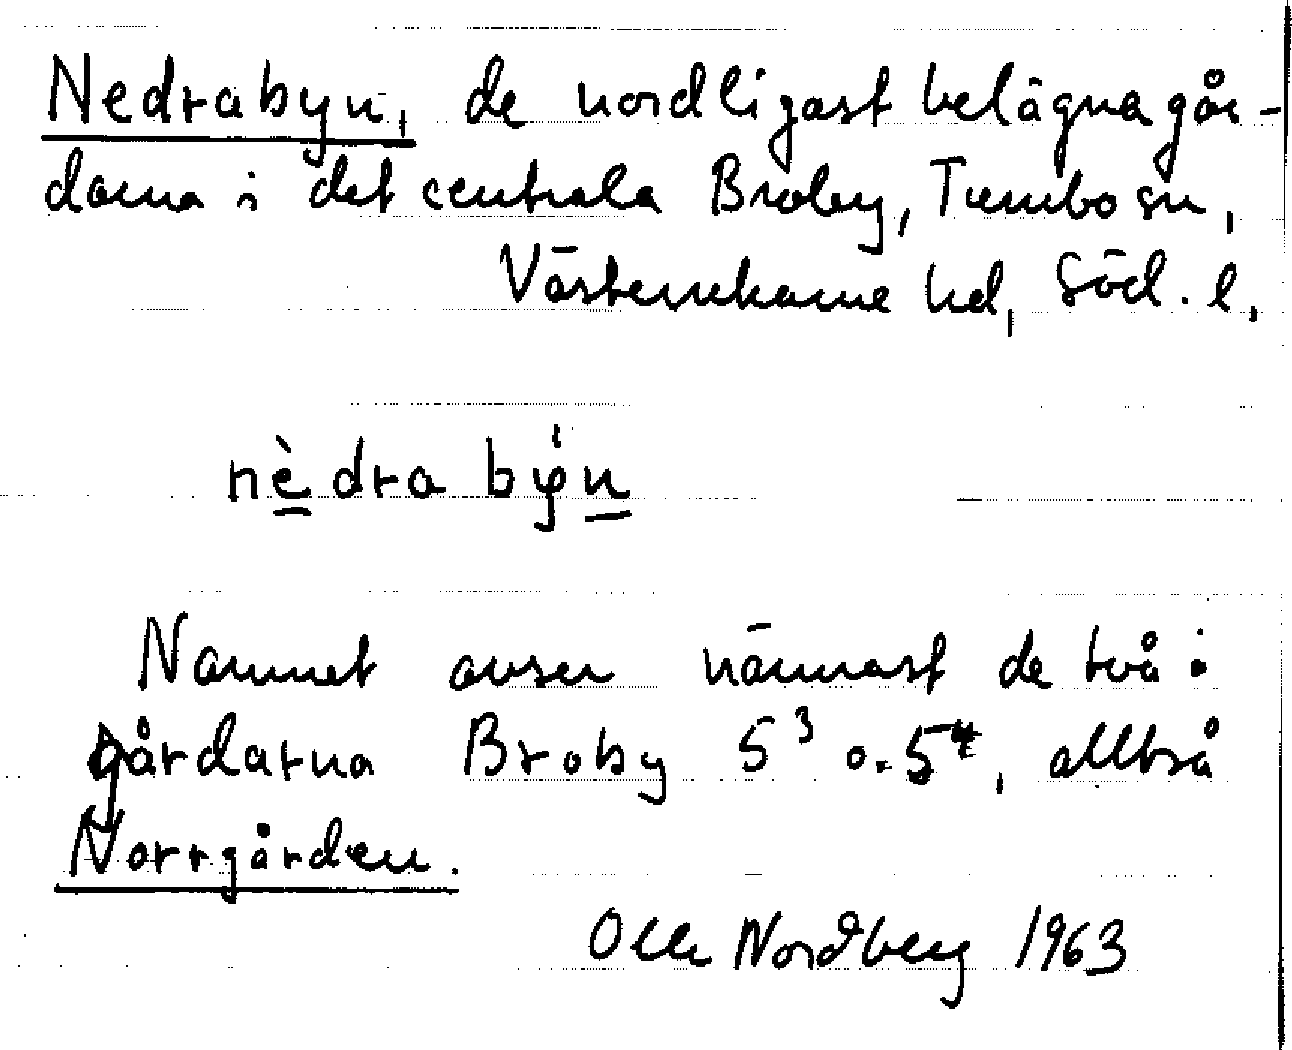 Nedrabyn, de nordligast belägna går-
darna i det centrala Broby, Tumbo sn,
Västerrekarne hd, Söd. l.
nè̲dra bý̇n̲
Namnet avser närmast de två
gårdarna Broby 5³ o. 5⁴, alltså
Norrgården.
Olle Nordberg 1963